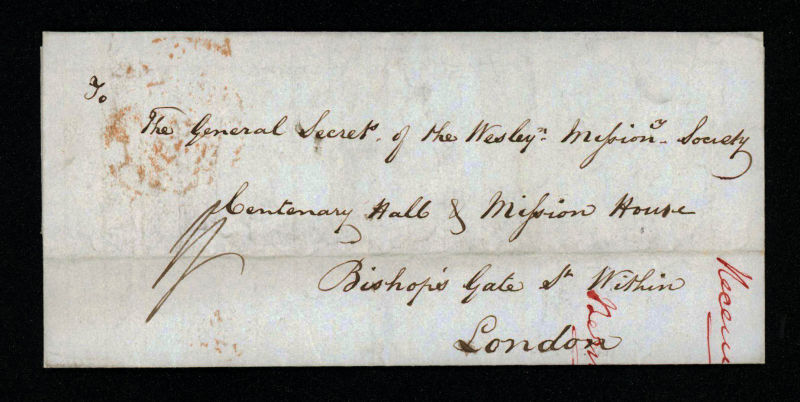 To
The General Secrets. of the Wesleyn. Missiony. Society
Centenary Hall & Mission House
Bishop's Gate St Within
London